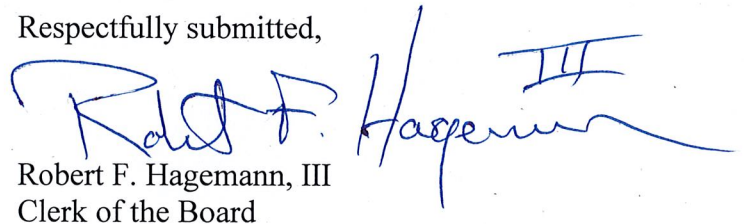 Respectfully submitted,
Robert F. Hagemann III
Robert F. Hagemann, III
Clerk of the Board